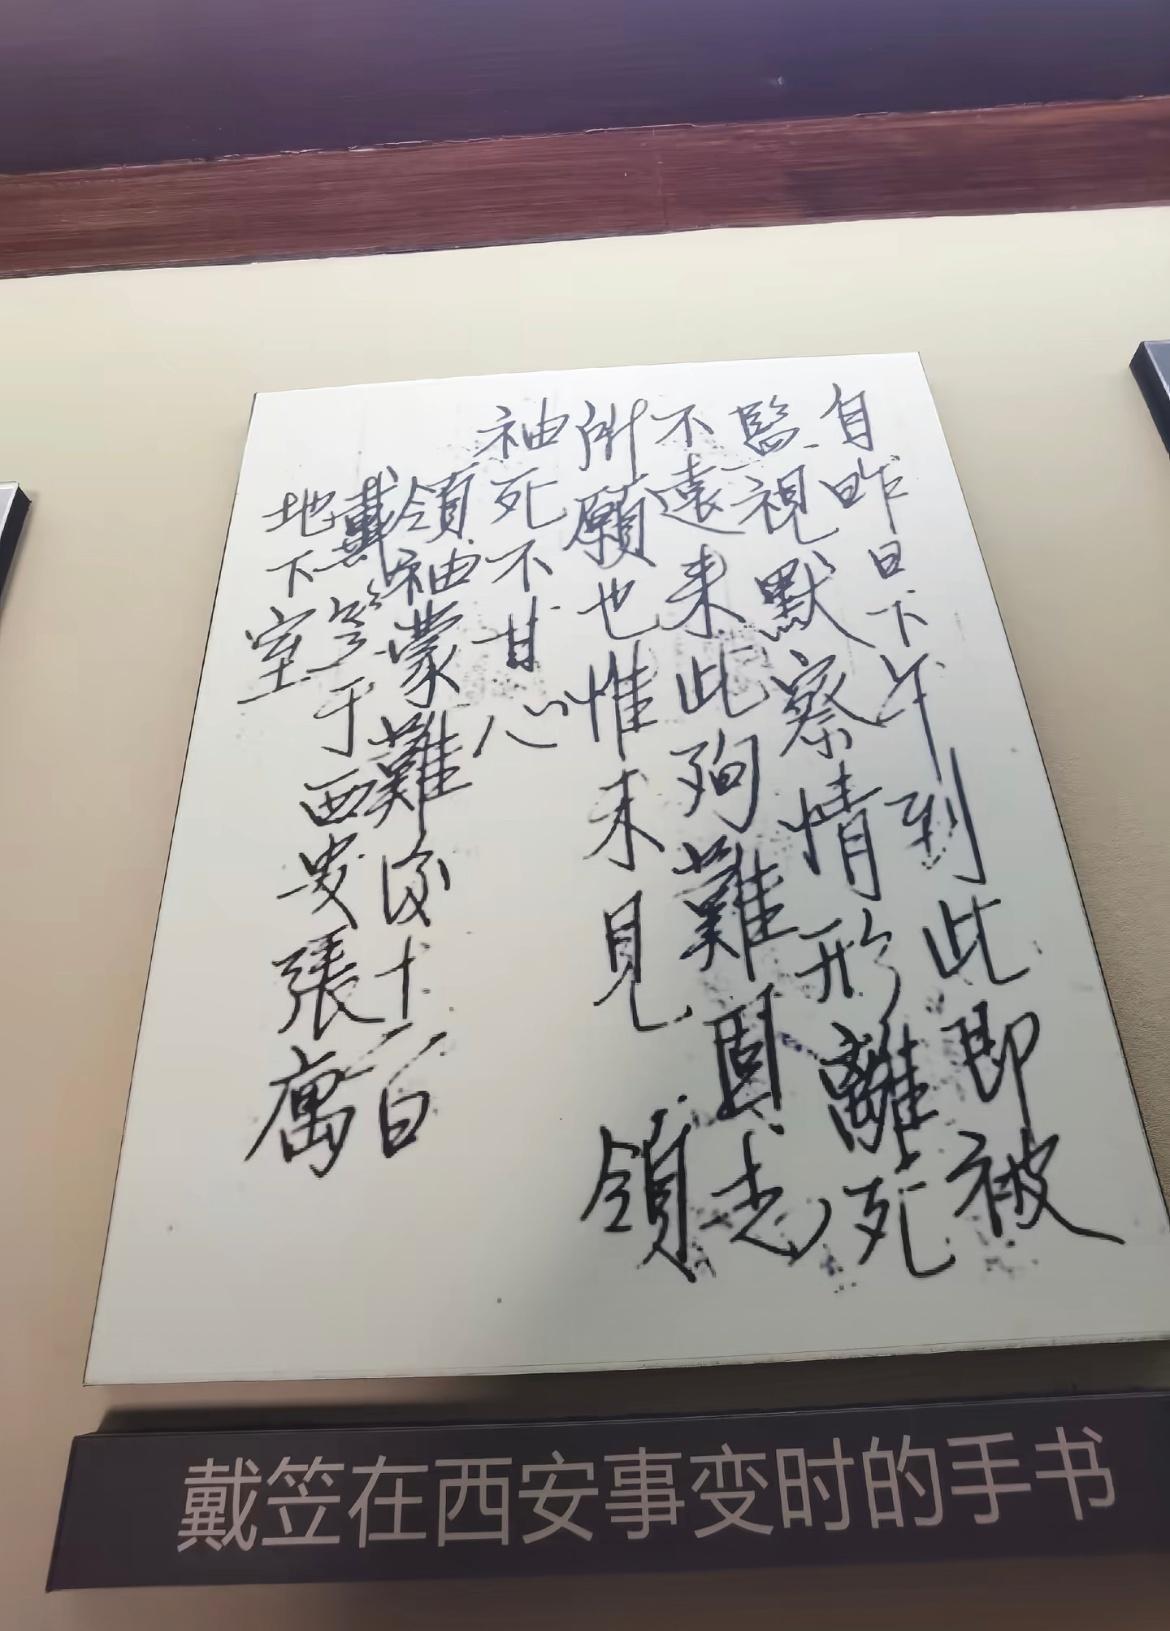 自昨日下午到此即被
監視默察情形離死
不遠来此殉難固志
所願也惟未見領
袖死不甘心
領袖蒙難後十二日
戴笠于西安張寓
地下室
戴笠在西安事变时的手书